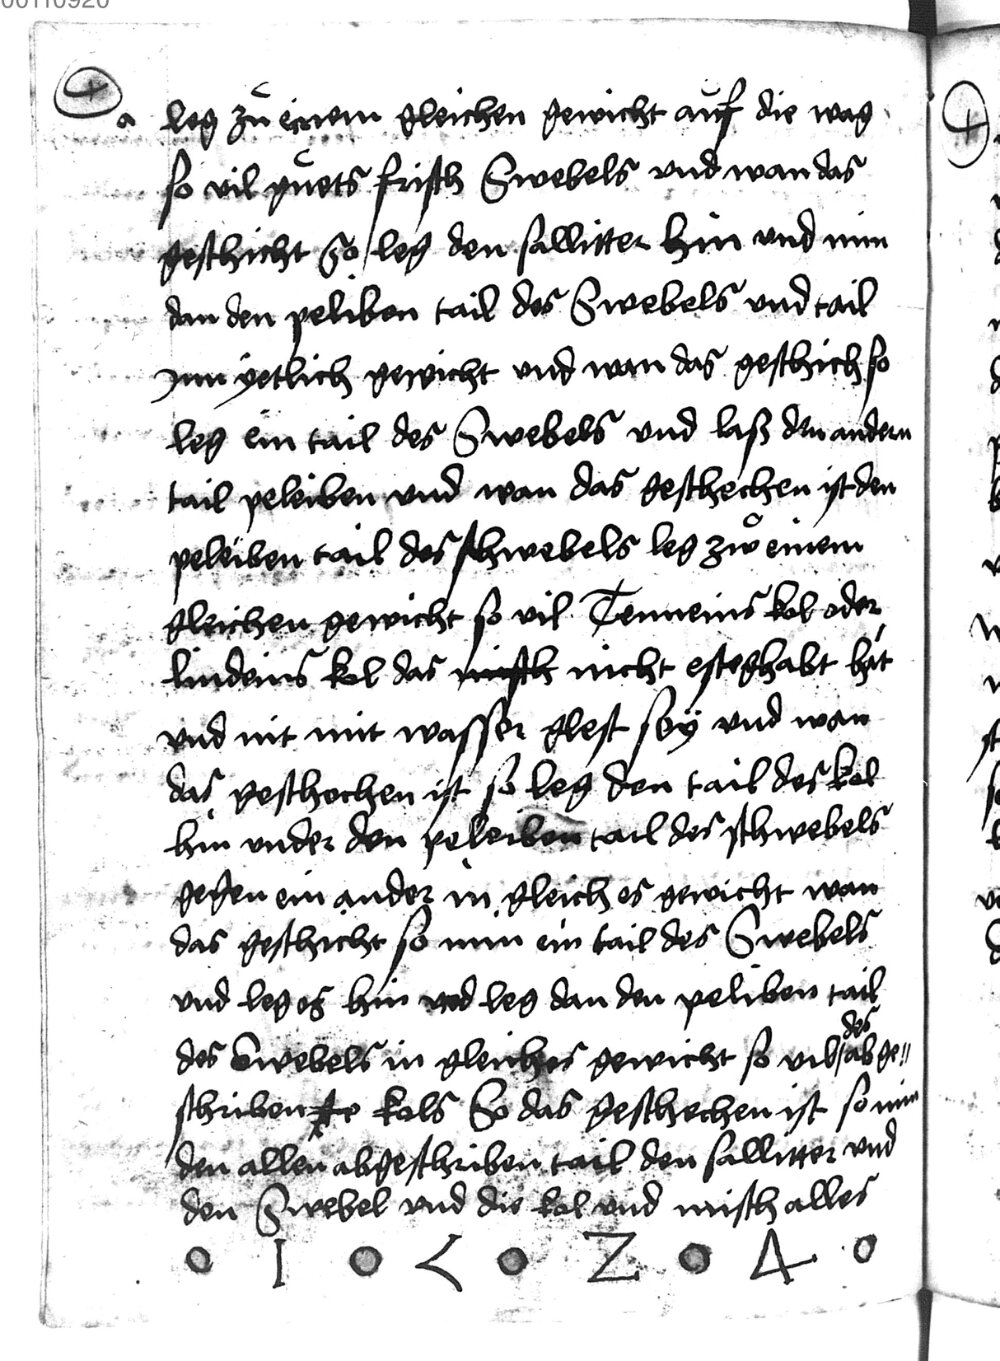 00110920
a leg zu einem gleichen gewicht auf die wag
so vil guets frisch Swebels vnd wan das
geschicht So leg den sallitter hin vnd nim
dan den peliben tail des Swebels vnd tail
Inn yetlich gewicht vnd wan das geschich so
leg ein tail des Swebels vnd laß den andern
tail peleiben vnd wan das geschechen ist den
peleiben tail des schwebels leg zwo einem
gleichen gewicht so vil Tenneins kol oder
lindeins kol das nicht esteghabt hat
vnd nit mit wasser glest sey vnd wan
das geschechen ist so leg den tail des kol
hin vnder den peleiben tail des schwebels
gegen ein ander in gleich es gewicht wan
das geschicht so nim ein tail des Swebels
vnd leg es hin vnd leg dan den peliben tail
des
des Swebels in gleiches gewicht so vil abge//
schriben kols So das geschechen ist so nim
den allen abgeschriben tail den sallitter vnd
den Swebel vnd die kol vnd misch alles